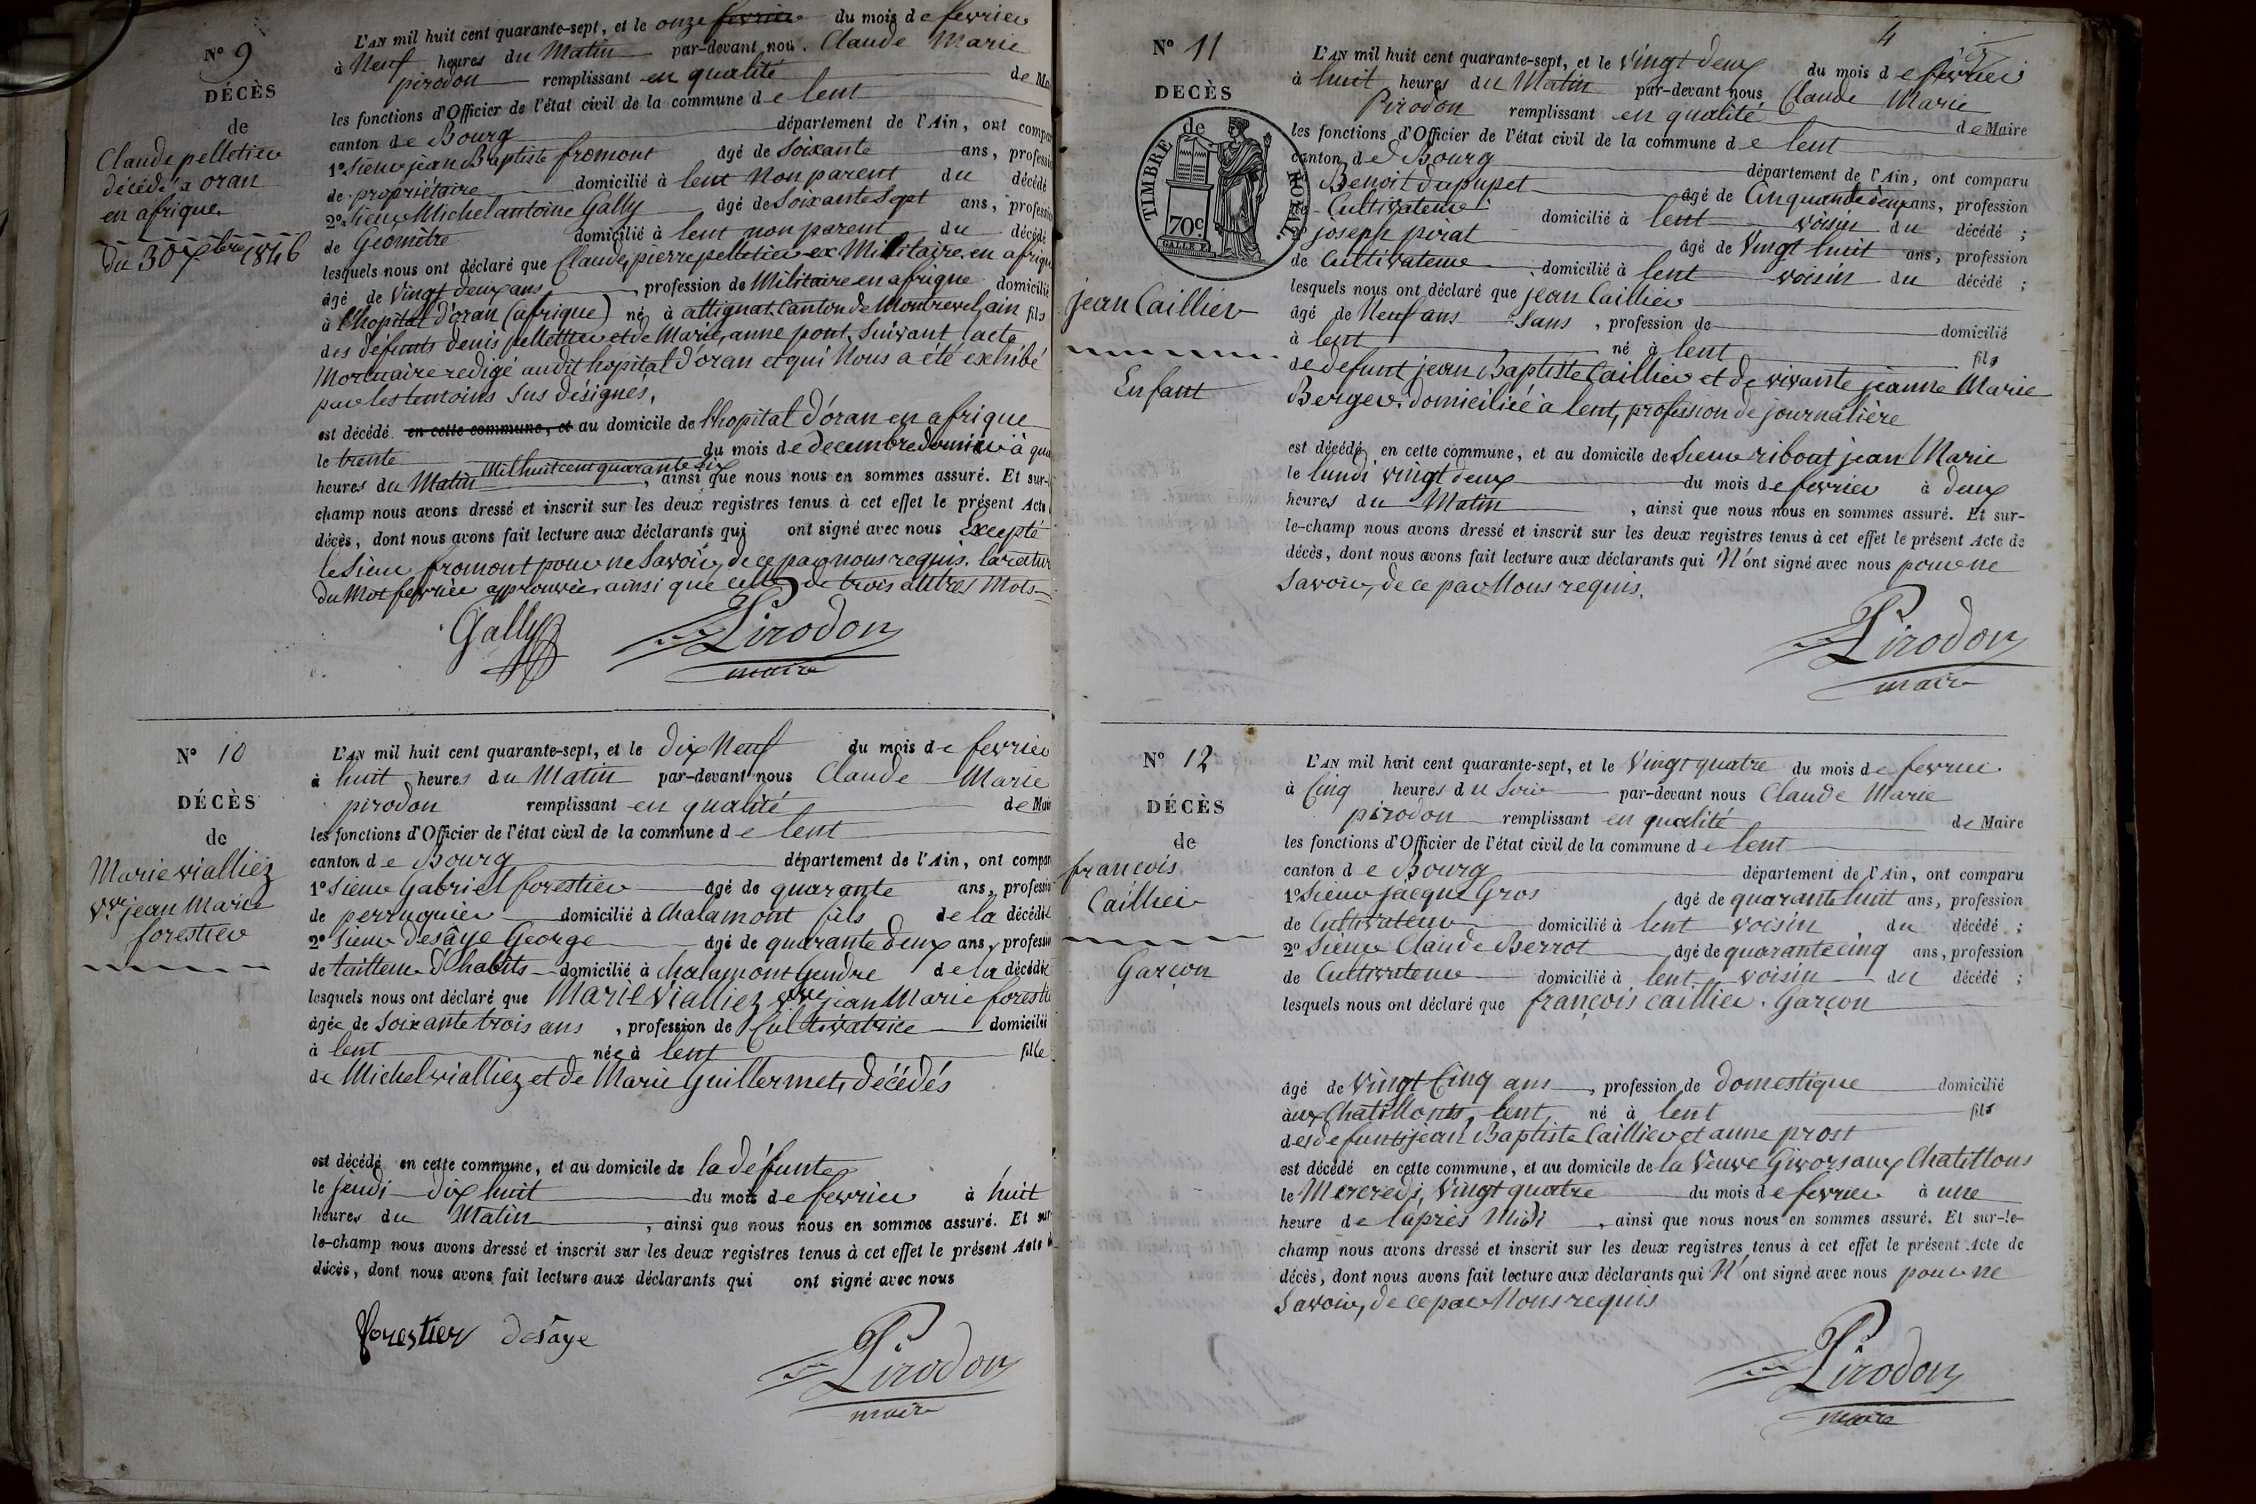 N° 9
DÉCÈS
de
Claude pelletier
décédé a oran
en afrique
du 30 Xbre 1846
L'AN mil huit cent quarante-sept, et le onze fevrier du mois de fevrier
à Neuf heures du Matin par-devant nou. Claude Marie
pirodon remplissant en qualité de Ma
les fonctions d'Officier de l'état civil de la commune de lent
canton de Bourg département de l'Ain, ont compa
1° Sieur jean Baptiste fromont âgé de Soixante ans, professi
de propriétaire domicilié à lent Non parent du décédé
2° Sieur Michel antoine Gally âgé de Soixante Sept ans, professi
de Géomètre domicilié à lent non parent du décédé
lesquels nous ont déclaré que Claude, pierre pelletier ex Militaire en afrique
âgé de Vingt deux ans, profession de Militaire en afrique domicilié
à l'hopital d'oran (afrique) né à attignat Canton de Montrevel, ain fils
des défunts denis pelletier et de Marie, anne pont, Suivant l'acte
Mortuaire redigé audit hopital d'oran et qui Nous a été exhibé
par les temoins Sus désignés.
est décédé en cette commune, et au domicile de l'hopital d'oran en afrique
le trente du mois de decembre dernier à qua
Mil huit cent quarante Six
heures du Matin, ainsi que nous nous en sommes assuré. Et sur-
champ nous avons dressé et inscrit sur les deux registres tenus à cet effet le présent Acte
décès, dont nous avons fait lecture aux déclarants qui ont signé avec nous Excepté
le Sieur fromont pour ne Savoir, de ce par nous requis. la ratur
du Mot fevrier approuvée, ainsi que celle de trois autres Mots
Gally Pirodon
maire
N° 10
DÉCÈS
de
Marie vialliez
Vve jean Marie
forestier
L'AN mil huit cent quarante-sept, et le dix Neuf du mois de fevrier
à huit heures du Matin par-devant nous Claude Marie
pirodon remplissant en qualité de Mai
les fonctions d'Officier de l'état civil de la commune de lent
canton de Bourg département de l'Ain, ont compar
1° Sieur Gabriel forestier âgé de quarante ans, professi
de perruquier domicilié à Chalamont fils de la décédée
2° Sieur desâye George âgé de quarante deux ans, professi
de tailleur d'habits domicilié à Chalamont Gendre de la décédée
lesquels nous ont déclaré que Marie Vialliez Vve jean Marie forestie
âgée de Soixante trois ans, profession de Cultivatrice domicilié
à lent née à lent fille
de Michel vialliez et de Marie Guillermet, décédés
est décédé en cette commune, et au domicile de la défunte
le jeudi dix huit du mois de fevrier à huit
heures du Matin, ainsi que nous nous en sommes assuré. Et sur
le-champ nous avons dressé et inscrit sur les deux registres tenus à cet effet le présent Acte
décès, dont nous avons fait lecture aux déclarants qui ont signé avec nous
forestier desaye Pirodon
maire
4
N° 11
DECÈS
de
TIMBRE ROYAL
70c.
jean Caillier
Enfant
L'AN mil huit cent quarante-sept, et le Vingt deux du mois de fevrier
à huit heures du Matin par-devant nous Claude Marie
Pirodon remplissant en qualité de Maire
les fonctions d'Officier de l'état civil de la commune de lent
canton de Bourg département de l'Ain, ont comparu
Benoit dupupet âgé de Cinquante deux ans, profession
de Cultivateur domicilié à lent voisin du décédé ;
2° joseph pirat âgé de Vingt huit ans, profession
de Cultivateur domicilié à lent voisin du décédé ;
lesquels nous ont déclaré que jean Caillier
âgé de Neuf ans Sans, profession de domicilié
à lent né à lent fils
de defunt jean Baptiste Caillier et de vivante jeanne Marie
Berger. domiciliée à lent, profession de journalière
est décédé en cette commune, et au domicile de Sieur ribout jean Marie
le lundi vingt deux du mois de fevrier à deux
heures du Matin, ainsi que nous nous en sommes assuré. Et sur-
le-champ nous avons dressé et inscrit sur les deux registres tenus à cet effet le présent Acte de
décès, dont nous avons fait lecture aux déclarants qui N'ont signé avec nous pour ne
Savoir, de ce par Nous requis.
Pirodon
maire
N° 12
DÉCÈS
de
francois
Caillier
Garçon
L'AN mil huit cent quarante-sept, et le Vingt quatre du mois de fevrier
à Cinq heures du Soir par-devant nous Claude Marie
pirodon remplissant en qualité de Maire
les fonctions d'Officier de l'état civil de la commune de lent
canton de Bourg département de l'Ain, ont comparu
1° Sieur jacque Gros âgé de quarante huit ans, profession
de Cultivateur domicilié à lent voisin du décédé ;
2° Sieur Claude Berrot âgé de quarante cinq ans, profession
de Cultivateur domicilié à lent voisin du décédé ;
lesquels nous ont déclaré que françois caillier. Garçon
âgé de Vingt Cinq ans, profession de domestique domicilié
aux Chatillons, lent, né à lent fils
des defunts jean Baptiste Caillier et anne prost
est décédé en cette commune, et au domicile de la Veuve Givors aux Chatillons
le Mercredi, Vingt quatre du mois de fevrier à une
heure de l'après Midi, ainsi que nous nous en sommes assuré. Et sur-le-
champ nous avons dressé et inscrit sur les deux registres tenus à cet effet le présent Acte de
décès, dont nous avons fait lecture aux déclarants qui N'ont signé avec nous pour ne
Savoir, de ce par Nous requis
Pirodon
maire